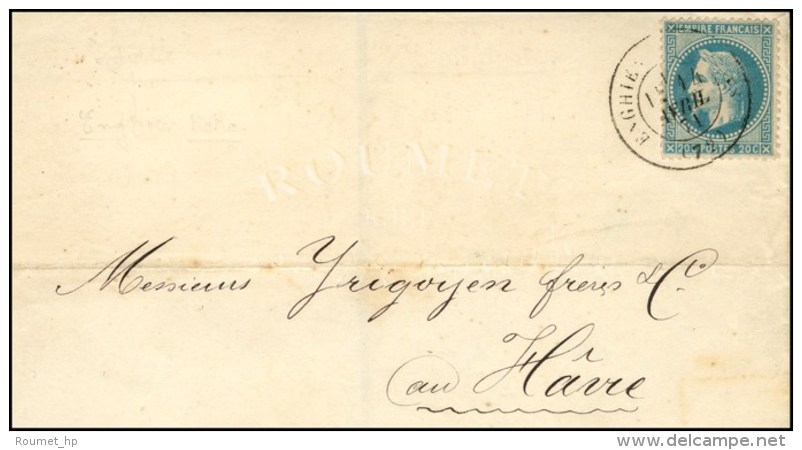 EMPIRE FRANÇAIS
20C POSTES 20C
ENGHIEN
14
AVRIL
71
ROUMET
Messieurs Yrigoyen frères & Cº
au Hâvre
Roumet_hp
delcampe.net